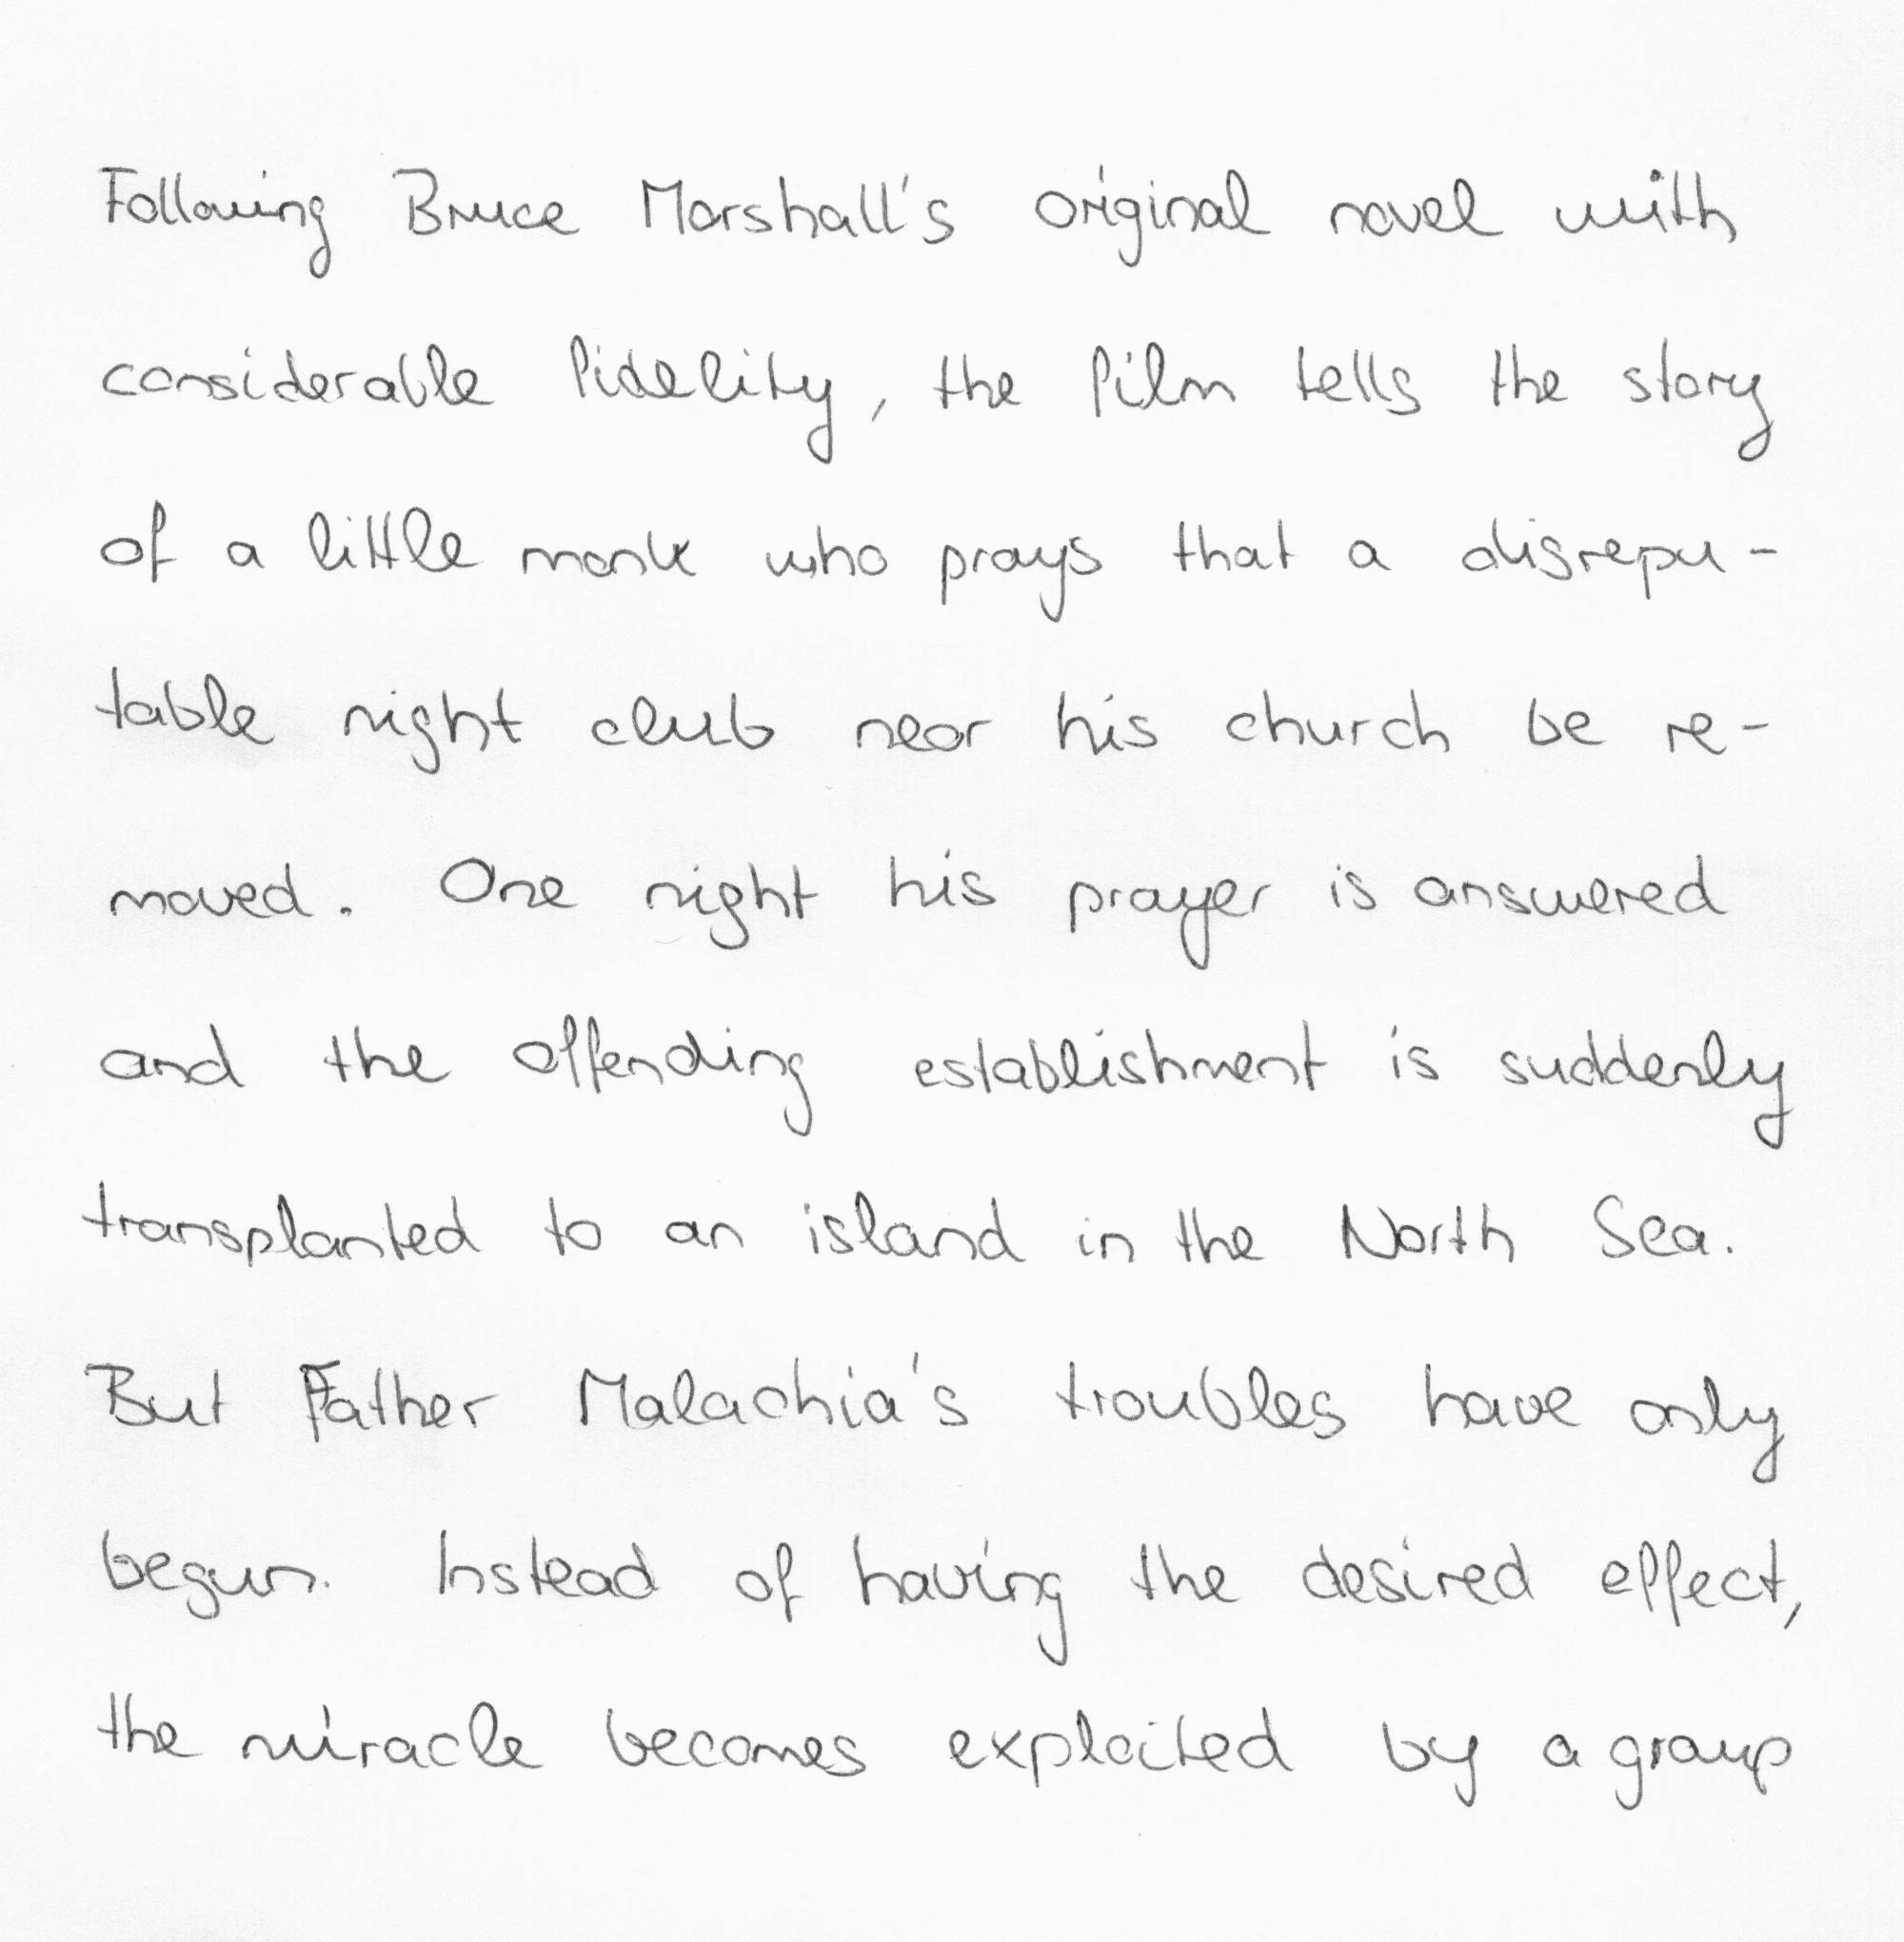 Following Bruce Marshall's original novel with
considerable fidelity, the film tells the story
of a little monk who prays that a disrepu-
table night club near his church be re-
moved. One night his prayer is answered
and the offending establishment is suddenly
transplanted to an island in the North Sea.
But Father Malachia's troubles have only
begun. Instead of having the desired effect,
the miracle becomes exploited by a group